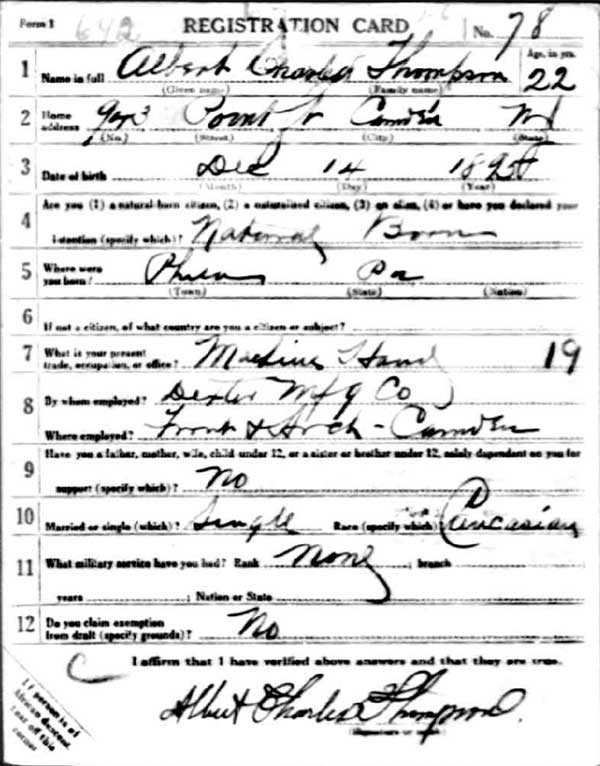 Form 1 642 REGISTRATION CARD No. 78
1 Name in full Albert Charles Thompson Age, in yrs. 22
(Given name) (Family name)
2 Home address Point St Camden NJ
(No.) (Street) (City) (State)
3 Date of birth Dec 14 1894
(Month) (Day) (Year)
4 Are you (1) a natural-born citizen, (2) a naturalized citizen, (3) an alien, (4) or have you declared your
intention (specify which)? Natural Born
5 Where were you born? Phila Pa
(Town) (State) (Nation)
6 If not a citizen, of what country are you a citizen or subject?
7 What is your present trade, occupation, or office? Machine Hand 19
8 By whom employed? Dexter Mfg Co
Where employed? Front & Arch - Camden
9 Have you a father, mother, wife, child under 12, or a sister or brother under 12, solely dependent on you for
support (specify which)? No
10 Married or single (which)? Single Race (specify which) Caucasian
11 What military service have you had? Rank None ; branch
years ; Nation or State
12 Do you claim exemption from draft (specify grounds)? No
I affirm that I have verified above answers and that they are true.
Albert Charles Thompson
(Signature or mark)
If person is of
African descent,
tear off this
corner